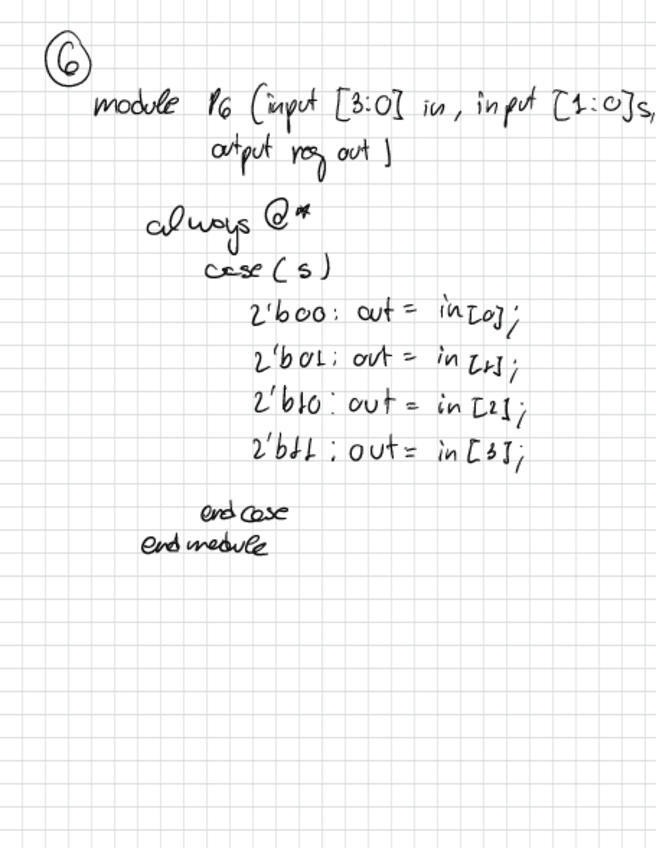 6
module P6 (input [3:0] in, input [1:0]s,
output reg out )
always @*
case (s)
2'b00: out = in[0];
2'b01: out = in [1];
2'b10: out = in [2];
2'b11: out = in [3];
endcase
endmodule